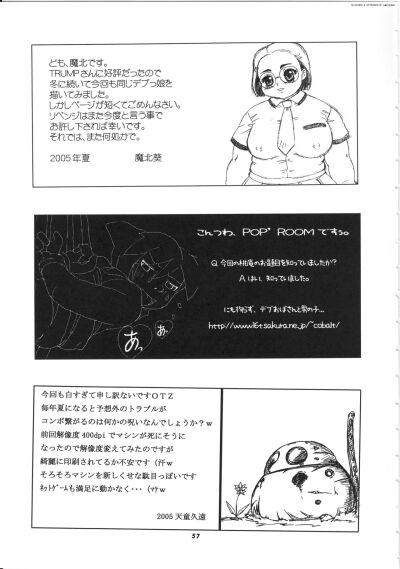 ども、魔北です。
TRUMPさんに好評だったので
冬に続いて今回も同じデブっ娘を
描いてみました。
しかしページが短くてごめんなさい。
リベンジはまた今度と言う事で
お許し下されば幸いです。
それでは、また何処かで。
2005年夏 魔北葵
こんつわ、POP' ROOMですょ。
Q.今回の桃庵のお題目を知っていましたか?
A.はい、知っていました。
にも拘らず、デブおばさんと男の子…
http://www16t.sakura.ne.jp/~cobalt/
あっ
あ。
今回も白すぎて申し訳ないですOTZ
毎年夏になると予想外のトラブルが
コンボ繋がるのは何かの呪いなんでしょうか?w
前回解像度400dpiでマシンが死にそうに
なったので解像度変えてみたのですが
綺麗に印刷されてるか不安です(汗w
そろそろマシンを新しくせな駄目っぽいです
ネットゲームも満足に動かなく・・・(マテw
2005 天童久遠
57